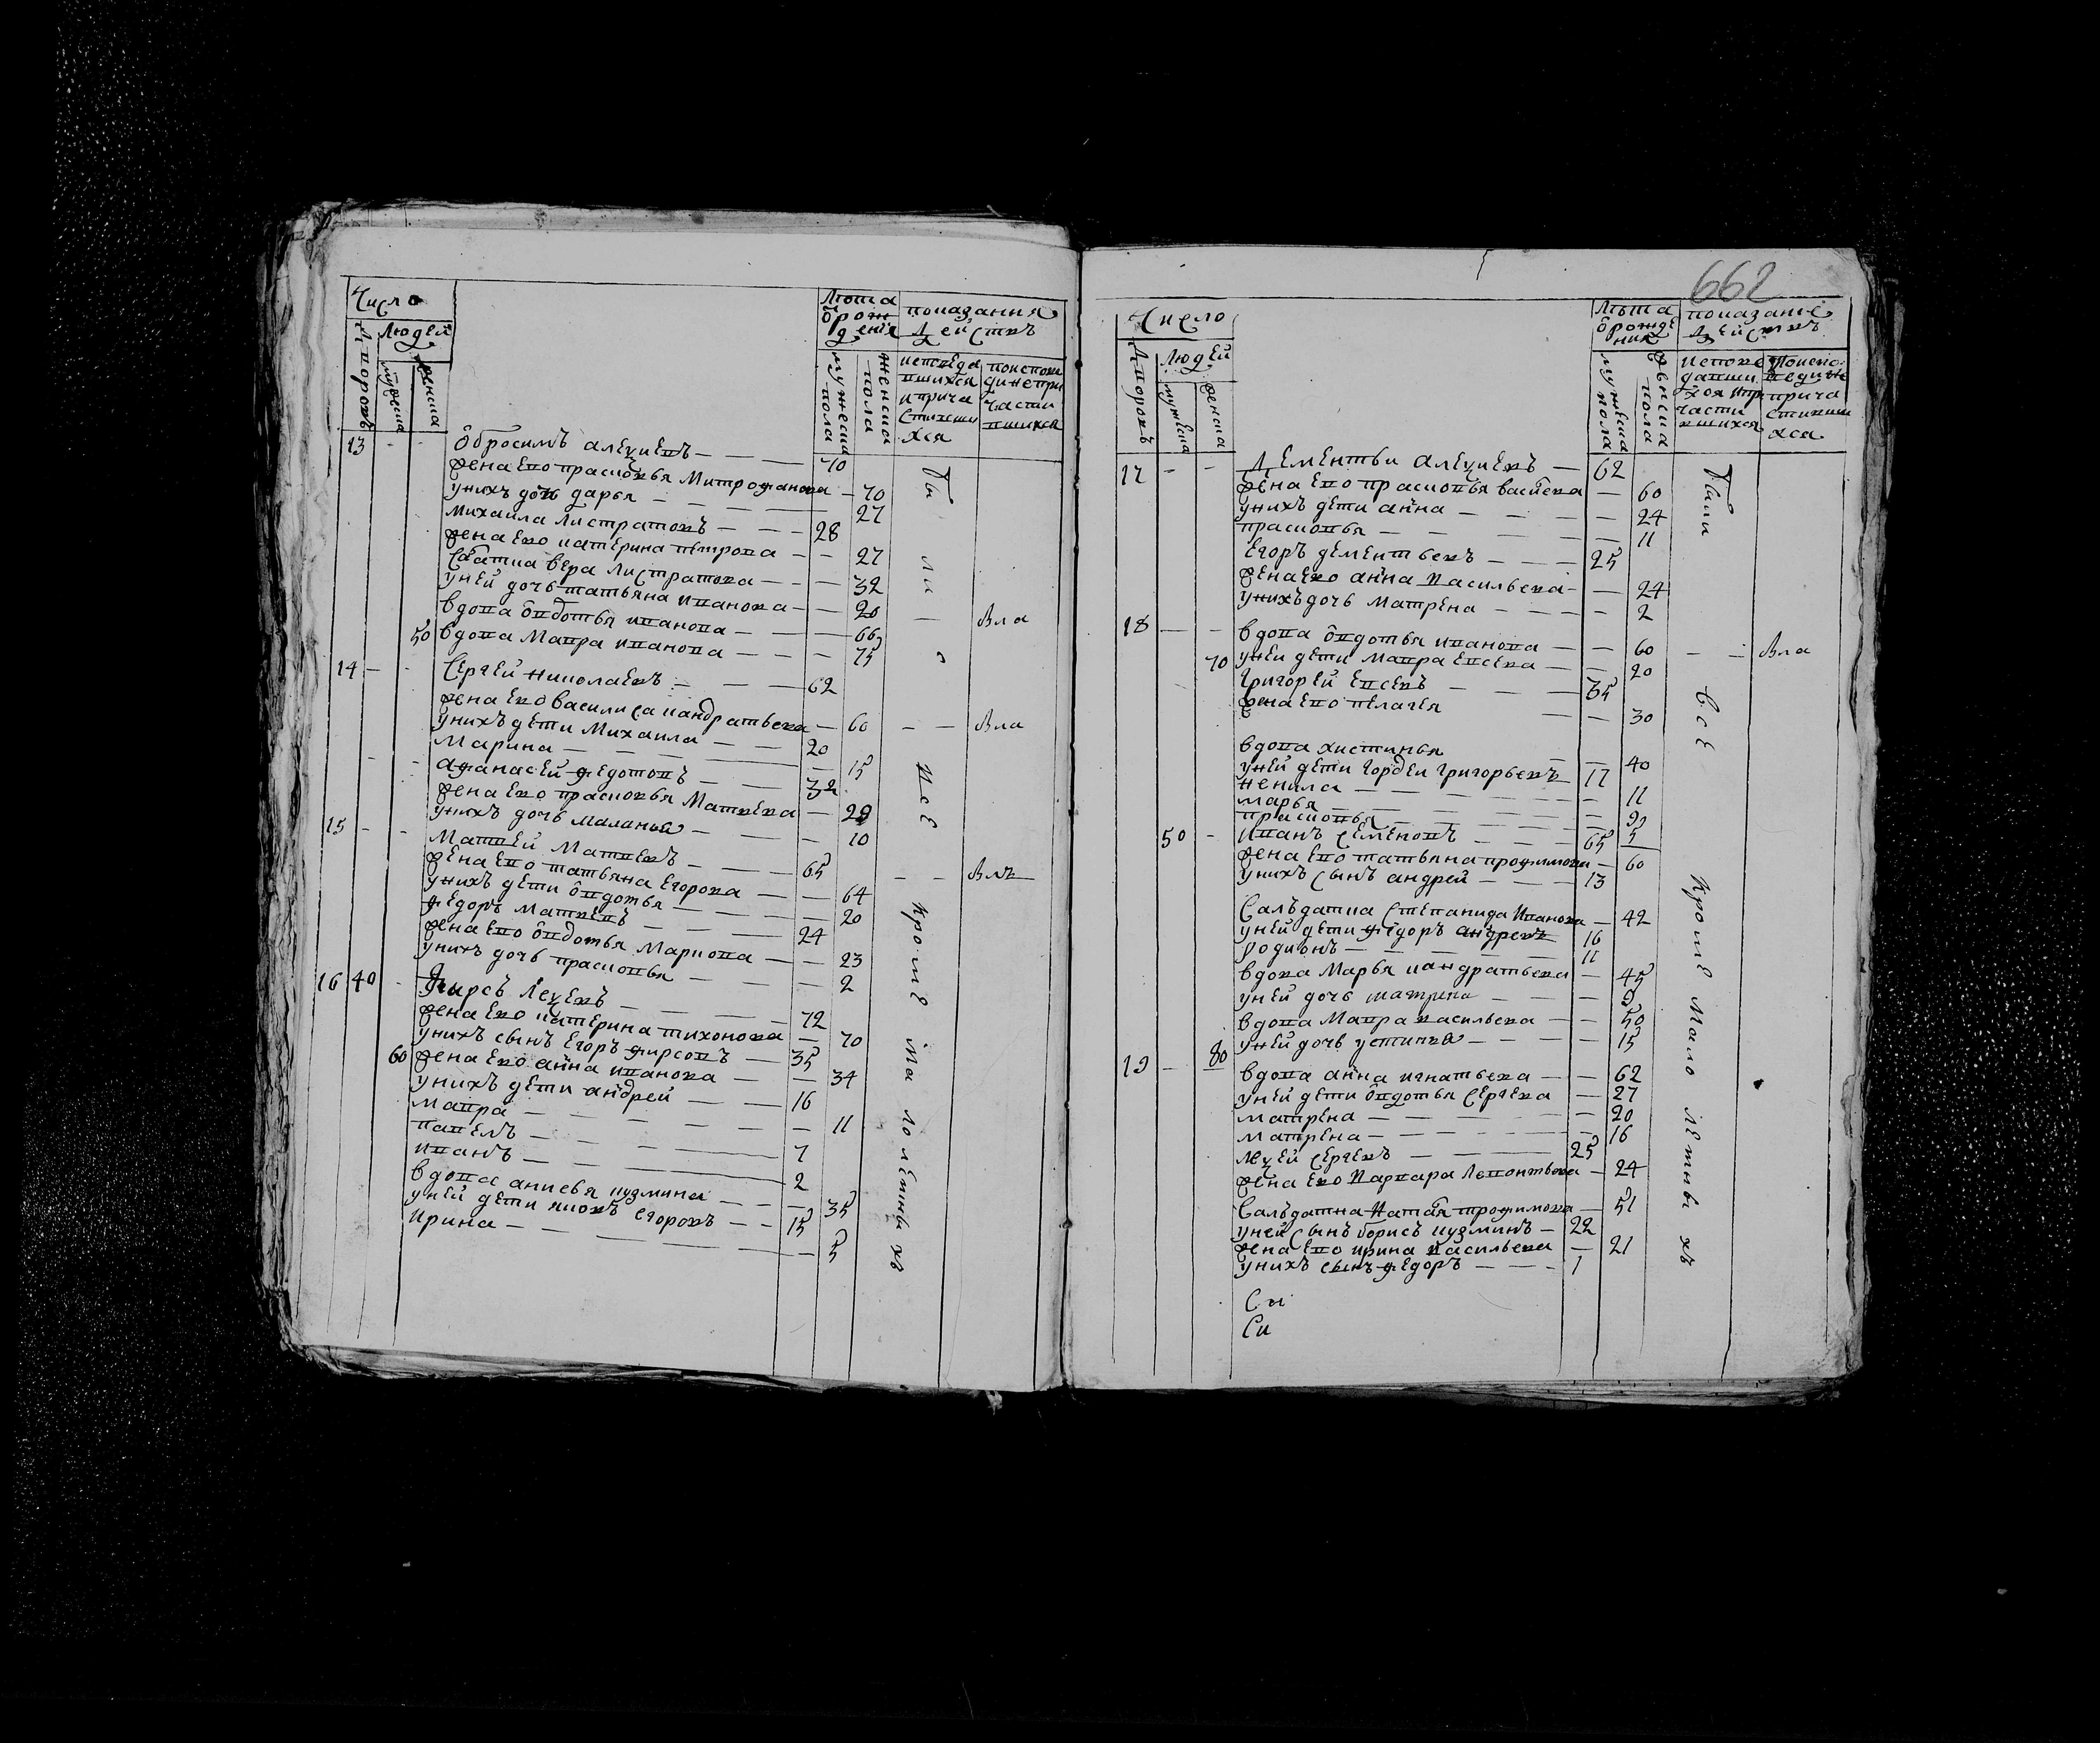 Число
Дворовъ
Людей
мужеска
женска
Лѣта
ѿ рож
денїя
мужеска
пола
женска
пола
показания
Дѣйствъ
исповѣда
вшихся
и прича
стивши
хся
по исповѣ
ди не при
части
вшихся
13 - - Обросимъ алеѯѣевъ 70
жена ево прасковья Митрофанова 70
у нихъ дочь дарья 27
михаила Листратовъ 28
жена ево катерина петрова 27
Салдатка вера Листратова 32
у ней дочь татьяна иванова 20
вдова ѡвдотья иванова 66 Вла
50 вдова Мавра иванова 75
14 - - Сергей николаевъ 62
жена ево василиса кандратьева 60 Вла
у нихъ дети Михаила 20
Марина 15
афанасей федотовъ 32
жена ево прасковья Матвева 29
у нихъ дочь маланья 10
15 - - Матвей Матвевъ 65
жена ево татьяна Егорова 64 Влъ
у нихъ дети ѡвдотья 20
федоръ матвевъ 24
жена ево ѡвдотья Маркова 23
у нихъ дочь прасковья 2
16 40 - Фирсъ Леѯевъ 72
жена ево катерина тихонова 70
у нихъ сынъ Егоръ фирсовъ 35
60 жена ево анна иванова 34
у нихъ дети андрей 16
мавра 11
павелъ 7
иванъ 2
вдова анисья кузмина 35
у ней дети яковъ егоровъ 15
ирина 5
Бы
ли
все
кроме
ма
лолетны
хъ
662
Число
Дворовъ
Людей
мужеска
женска
Лѣта
ѿ рожде
ния
мужеска
пола
женска
пола
показанїе
Дѣйствъ
испове
давши
хся и при
части
вшихся
По испо
веди не
прича
стивши
хся
17 - - Дементьи алеѯевъ 62
жена ево прасковья васильева 60
у нихъ дети анна 24
прасковья 11
Егоръ дементьевъ 25
жена ево анна васильева 24
у нихъ дочь матрена 2
18 - - вдова ѡвдотья иванова 60 Вла
70 у ней дети мавра евсева 20
Григорей Евсевъ 35
жена ево пелагея 30
вдова хистинья 40
у ней дети гордеи Григорьевъ 17
ненила 11
марья 9
прасковья 5
50 - иванъ семеновъ 65
жена ево татьяна трофимова 60
у нихъ сынъ андрей 13
Салъдатка степанида иванова 42
у ней дети федоръ андревъ 16
родионъ 11
вдова Марья кандратьева 45
у ней дочь матрена 9
вдова Мавра васильева 50
80 у ней дочь устинья 15
19 - вдова анна игнатьева 62
у ней дети ѡвдотья Сергева 27
матрена 20
матрена 16
Леѯей сергевъ 25
жена ево варвара Левонтьева 24
Салъдатка наталья трофимова 51
у ней сынъ борисъ кузминъ 22
жена ево ирина васильева 21
у нихъ сынъ федоръ 1
Си
Си
Были
все
кроме
мало
летны
хъ